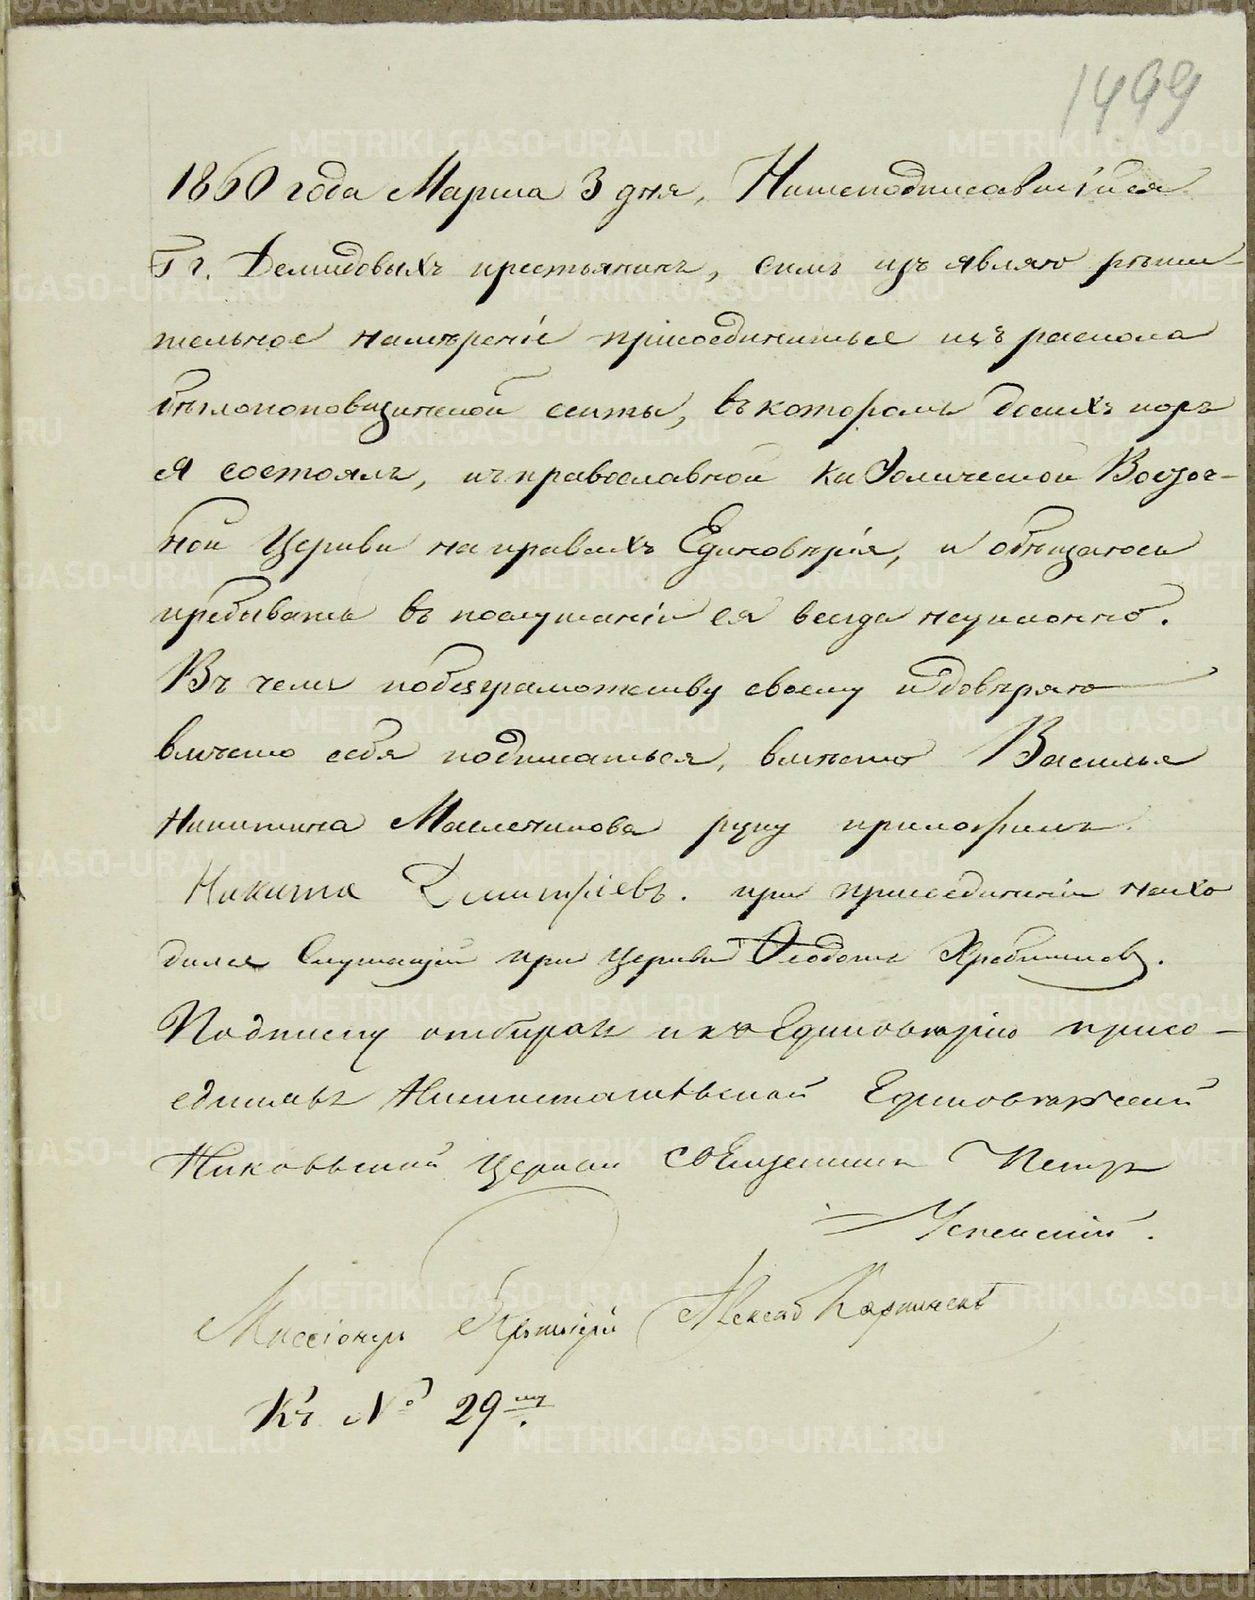 1499
1860 года Марта 3 дня, Нижеподписавшійся
Гг. Демидовыхъ крестьянинъ, симъ изъявляю рѣши-
тельное намѣреніе присоединиться изъ раскола
бѣглопоповщинской секты, въ которомъ досихъ поръ
я состоялъ, къ православной Каѳолической Восточ-
ной Церкви на правахъ Единовѣрія, и обѣщаюсь
пребывать въ послушаніи ея всегда неуклонно.
Въ чемъ побезграмотству своему и довѣряю
вмѣсто себя подписаться, вмѣсто Василья
Никитина Масленикова руку приложилъ
Никита Дмитріевъ. при присоединеніи нахо
дился Служащій при Церкви Ѳеодотъ
Подписку отбиралъ и къ Единовѣрію присо-
единялъ Нижнетагильской Единовѣрческой
Церкви Священникъ Петръ
Успенскій.
Миссіонеръ
Къ № 29му.
METRIKI.GASO-URAL.RU